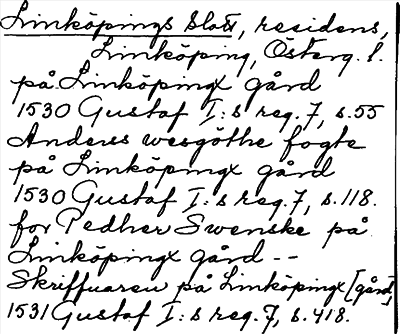 Linköpings Slott, residens,
Linköping, Österg. l.
på Linköpingx gård
1530 Gustaf I:s reg. 7, s. 55
Anders wesgöthe fogte
på Linköpingx gård
1530 Gustaf I:s reg. 7, s. 118.
for Pedher Swenske på
Linköpingx gård --
Skriffuaren på Linköpingx [gård]
1531 Gustaf I:s reg. 7, s. 418.